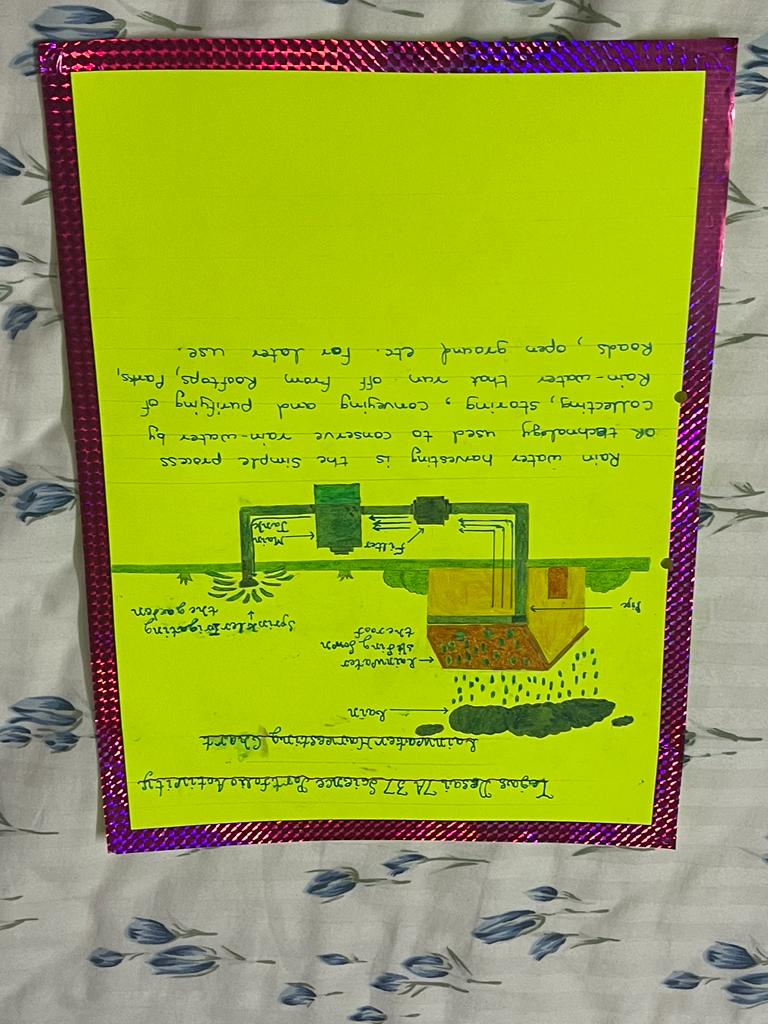 Tejas Desai 7A 37 Science Portfolio Activity
Rainwater Harvesting Chart
Rain
Rainwater
sliding down
the roof
Pipe
Sprinkler Irrigating
the garden
Filter
Main
Tank
Rain water harvesting is the simple process
OR technology used to conserve rain-water by
collecting, storing, conveying and purifying of
Rain-water that run off from Rooftops, Parks,
Roads, open ground etc. for later use.